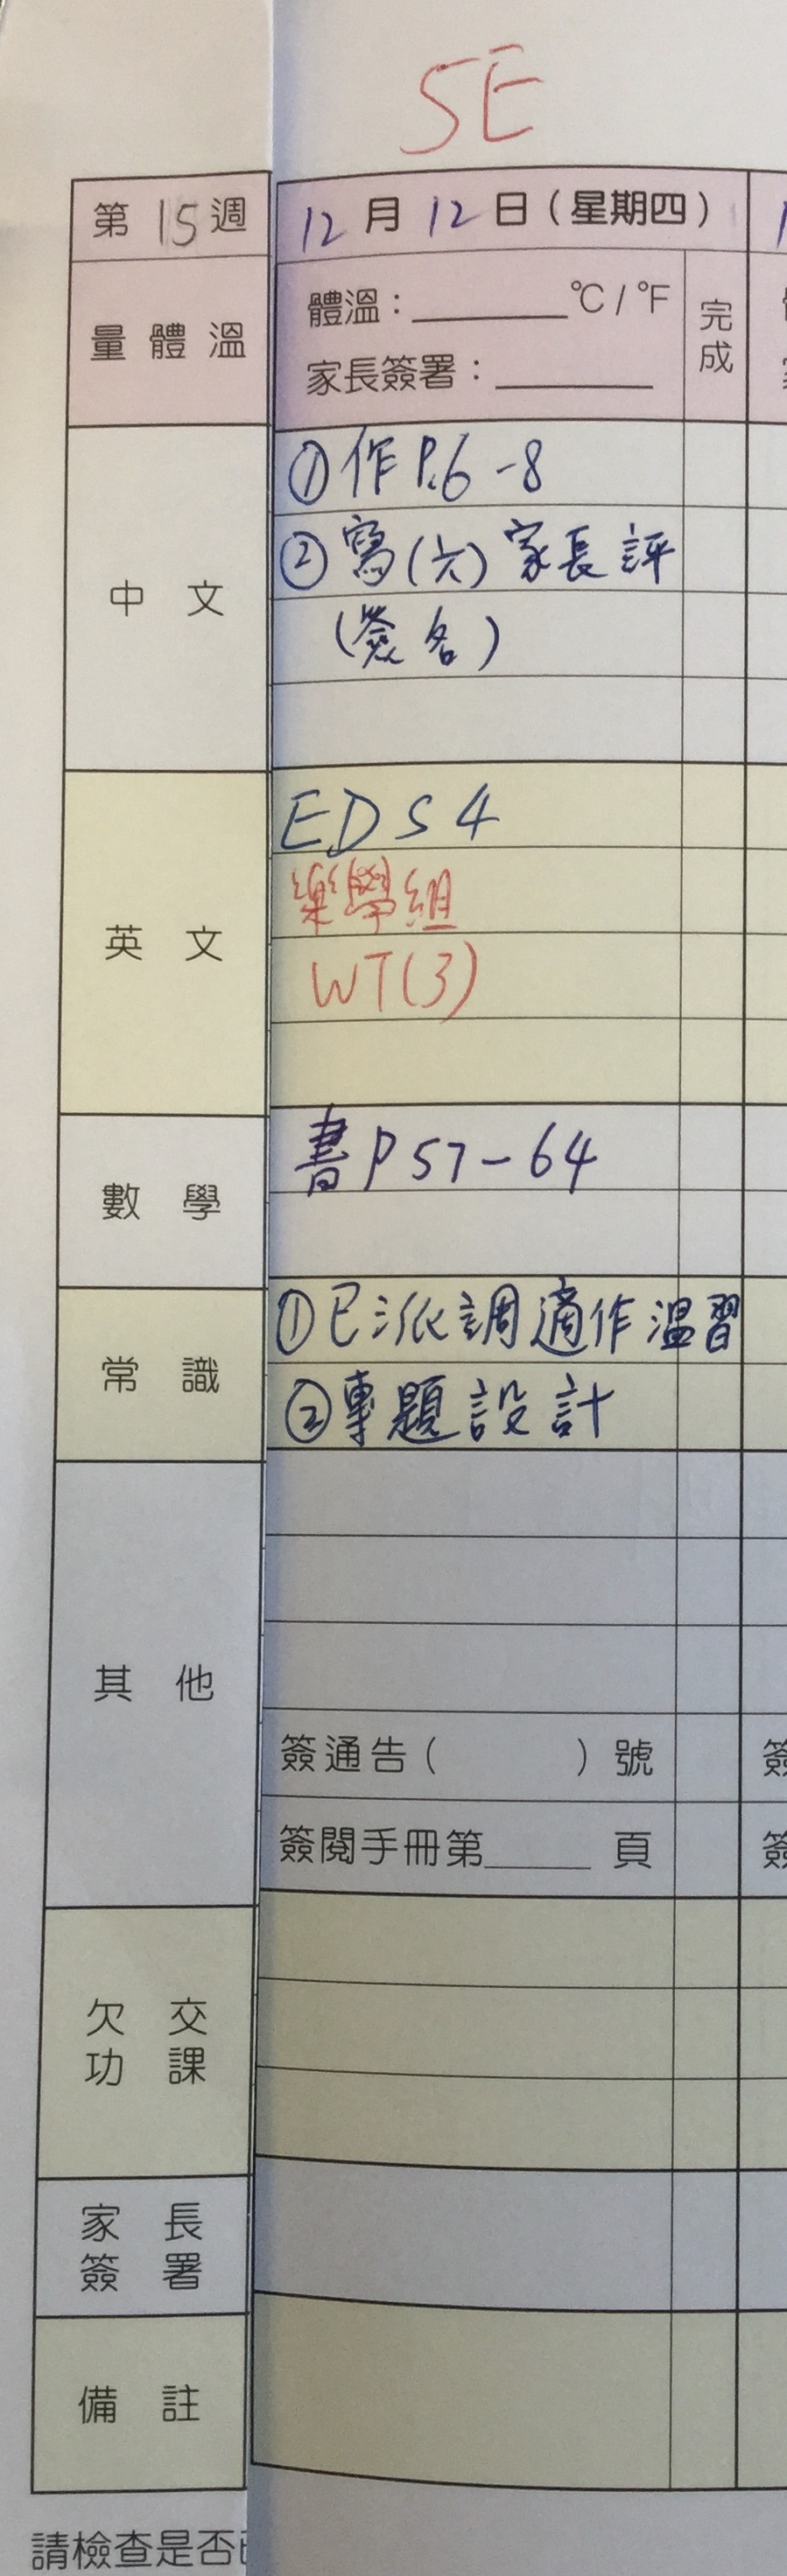 5E
第15週
12月12日(星期四)
量體溫
體溫:______°C/°F
家長簽署:______
完成
中文
①作P.6-8
②寫(六)家長評
(簽名)
英文
EDS4
樂學組
WT(3)
數學
書P57-64
常識
①已派調適作溫習
②專題設計
其他
簽通告( )號
簽閱手冊第______頁
欠交功課
家長簽署
備註
請檢查是否